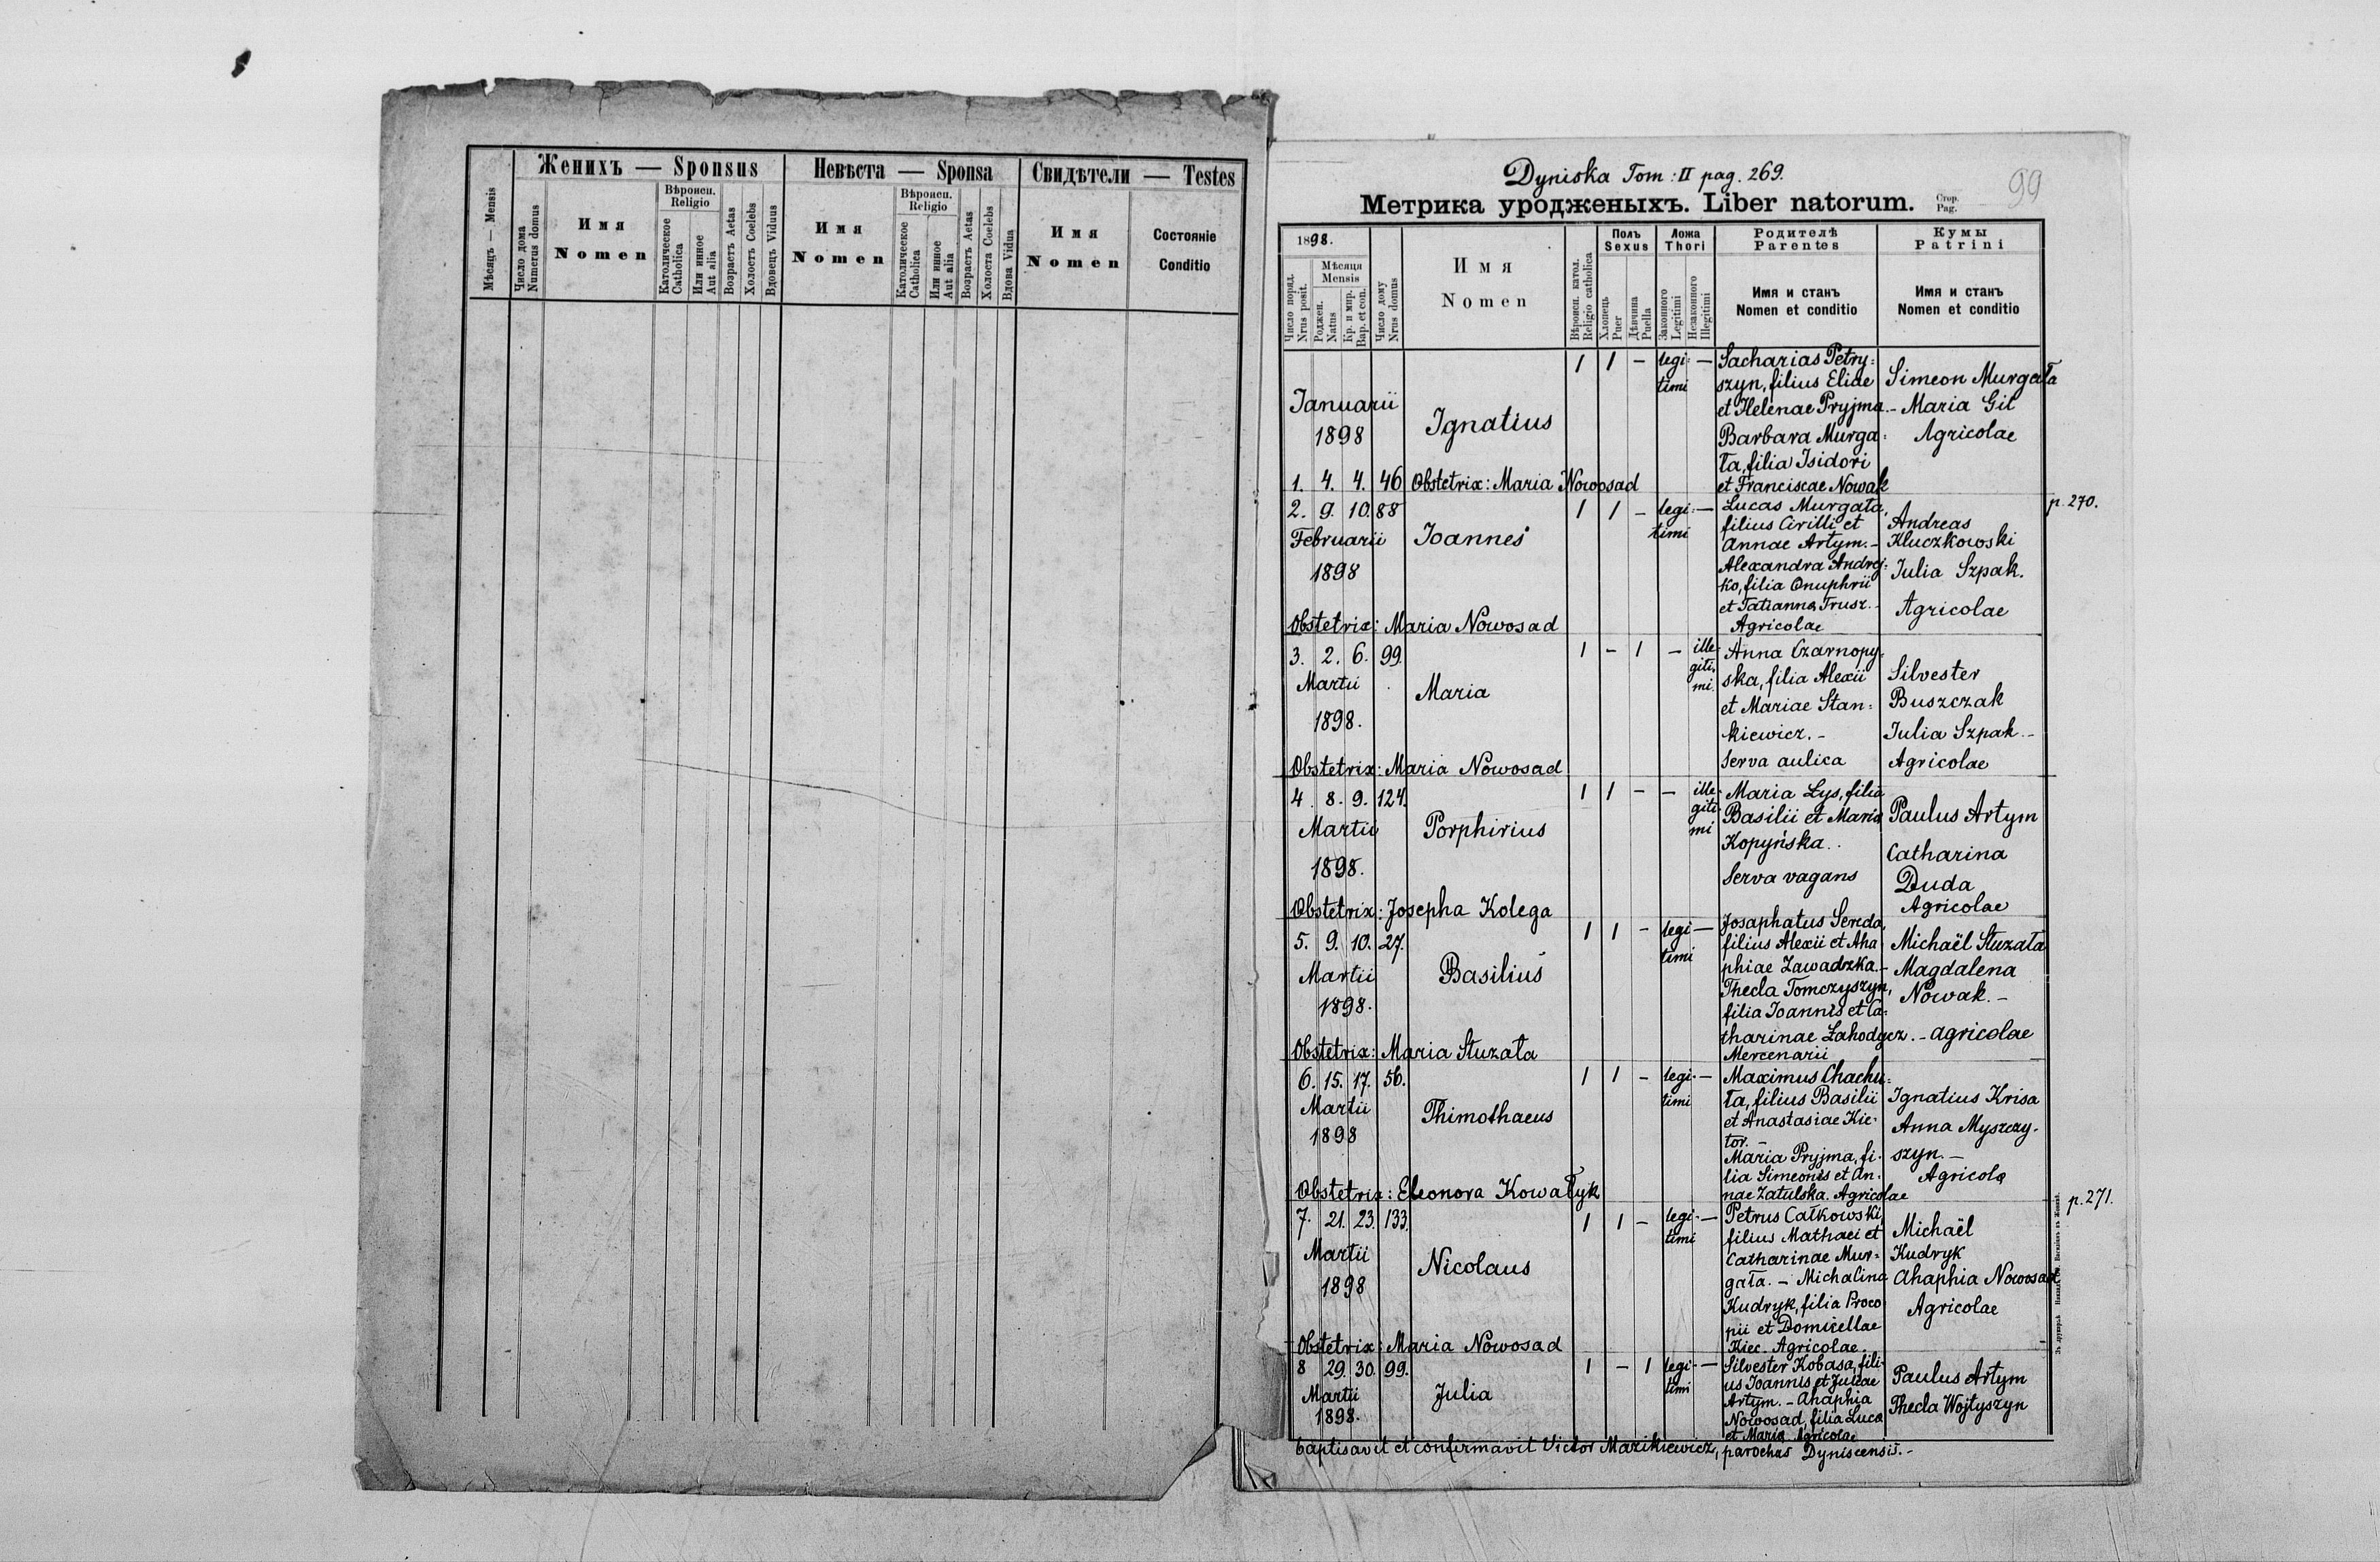 Женихъ — Sponsus
Невѣста — Sponsa
Свидѣтели — Testes
Мѣсяцъ — Mensis
Число дома
Numerus domus
Имя
Nomen
Вѣроисп.
Religio
Католическое
Catholica
Или инное
Aut alia
Возрастъ Aetas
Холостъ Coelebs
Вдовецъ Viduus
Имя
Nomen
Вѣроисп.
Religio
Католическое
Catholica
Или инное
Aut alia
Возрастъ Aetas
Холоста Coelebs
Вдова Vidua
Имя
Nomen
Состояніе
Conditio
Dyniska Tom: II pag. 269.
Метрика уродженыхъ. Liber natorum.
Стор.
Pag.
99
1898.
Число поряд.
Nrus posit.
Мѣсяця
Mensis
Роджен.
Natus
Кр. и мир.
Bap. et con.
Число дому
Nrus domus
Имя
Nomen
Вѣроисп. катол.
Religio catholica
Полъ
Sexus
Хлопець
Puer
Дѣвчина
Puella
Ложа
Thori
Законного
Legitimi
Незаконного
Illegitimi
Родителѣ
Parentes
Имя и станъ
Nomen et conditio
Кумы
Patrini
Имя и станъ
Nomen et conditio
Januarii
1898
1. 4. 4. 46
Ignatius
Obstetrix: Maria Nowosad
1 1 – legi- –
timi
Sacharias Petry=
szyn, filius Eliae
et Helenae Pryjma. –
Barbara Murga=
ła, filia Isidori
et Franciscae Nowak
Simeon Murgała
Maria Gil
Agricolae
p. 270.
2. 9. 10. 88
Februarii
1898
Joannes
Obstetrix: Maria Nowosad
1 1 – legi- –
timi
Lucas Murgała,
filius Cirilli et
Annae Artym. –
Alexandra Andrej=
ko, filia Onuphrii
et Tatianna Trusz. –
Agricolae
Andreas
Kluczkowski
Julia Szpak.
Agricolae
3. 2. 6. 99.
Martii
1898.
Maria
Obstetrix: Maria Nowosad
1 – 1 – ille-
giti-
mi.
Anna Czarnopy=
ska, filia Alexii
et Mariae Stan=
kiewicz. –
Serva aulica
Silvester
Buszczak
Julia Szpak –
Agricolae
4. 8. 9. 124.
Martii
1898.
Porphirius
Obstetrix: Josepha Kolega
1 1 – – ille-
giti-
mi
Maria Lys, filia
Basilii et Maria
Kopyńska..
Serva vagans
Paulus Artym
Catharina
Duda
Agricolae
5. 9. 10. 27.
Martii
1898.
Basilius
Obstetrix: Maria Stuzała
1 1 – legi- –
timi
Josaphatus Sereda,
filius Alexii et Aha
phiae Zawadzka. –
Thecla Tomczyszyn,
filia Joannis et Ca=
tharinae Zahodycz. –
Mercenarii
Michaël Stuzała
Magdalena
Nowak. –
agricolae
6. 15. 17. 56.
Martii
1898
Thimothaeus
Obstetrix: Eleonora Kowałyk
1 1 – legi- –
timi
Maximus Chachu=
ła, filius Basilii
et Anastasiae Kie-
tor. –
Maria Pryjma, fi-
lia Simeonis et An-
nae Zatulska. Agricolae
Ignatius Krisa
Anna Myszczy-
szyn. –
Agricolae
p. 271.
7. 21. 23. 133.
Martii
1898
Nicolaus
Obstetrix: Maria Nowosad
1 1 – legi- –
timi
Petrus Całkowski,
filius Mathaei et
Catharinae Mur=
gała. – Michalina
Kudryk, filia Proco
pii et Domicellae
Kiec. Agricolae.
Michaël
Kudryk
Ahaphia Nowosad
Agricolae
8 29. 30. 99.
Martii
1898.
Julia
1 – 1 legi- –
timi
Silvester Kobasa, fili-
us Joannis et Juliae
Artym. – Ahaphia
Nowosad, filia Luca
et Maria Agricolae
Paulus Artym
Thecla Wojtyszyn
baptisavit et confirmavit Victor Mazikiewicz, parochus Dyniscensis. –